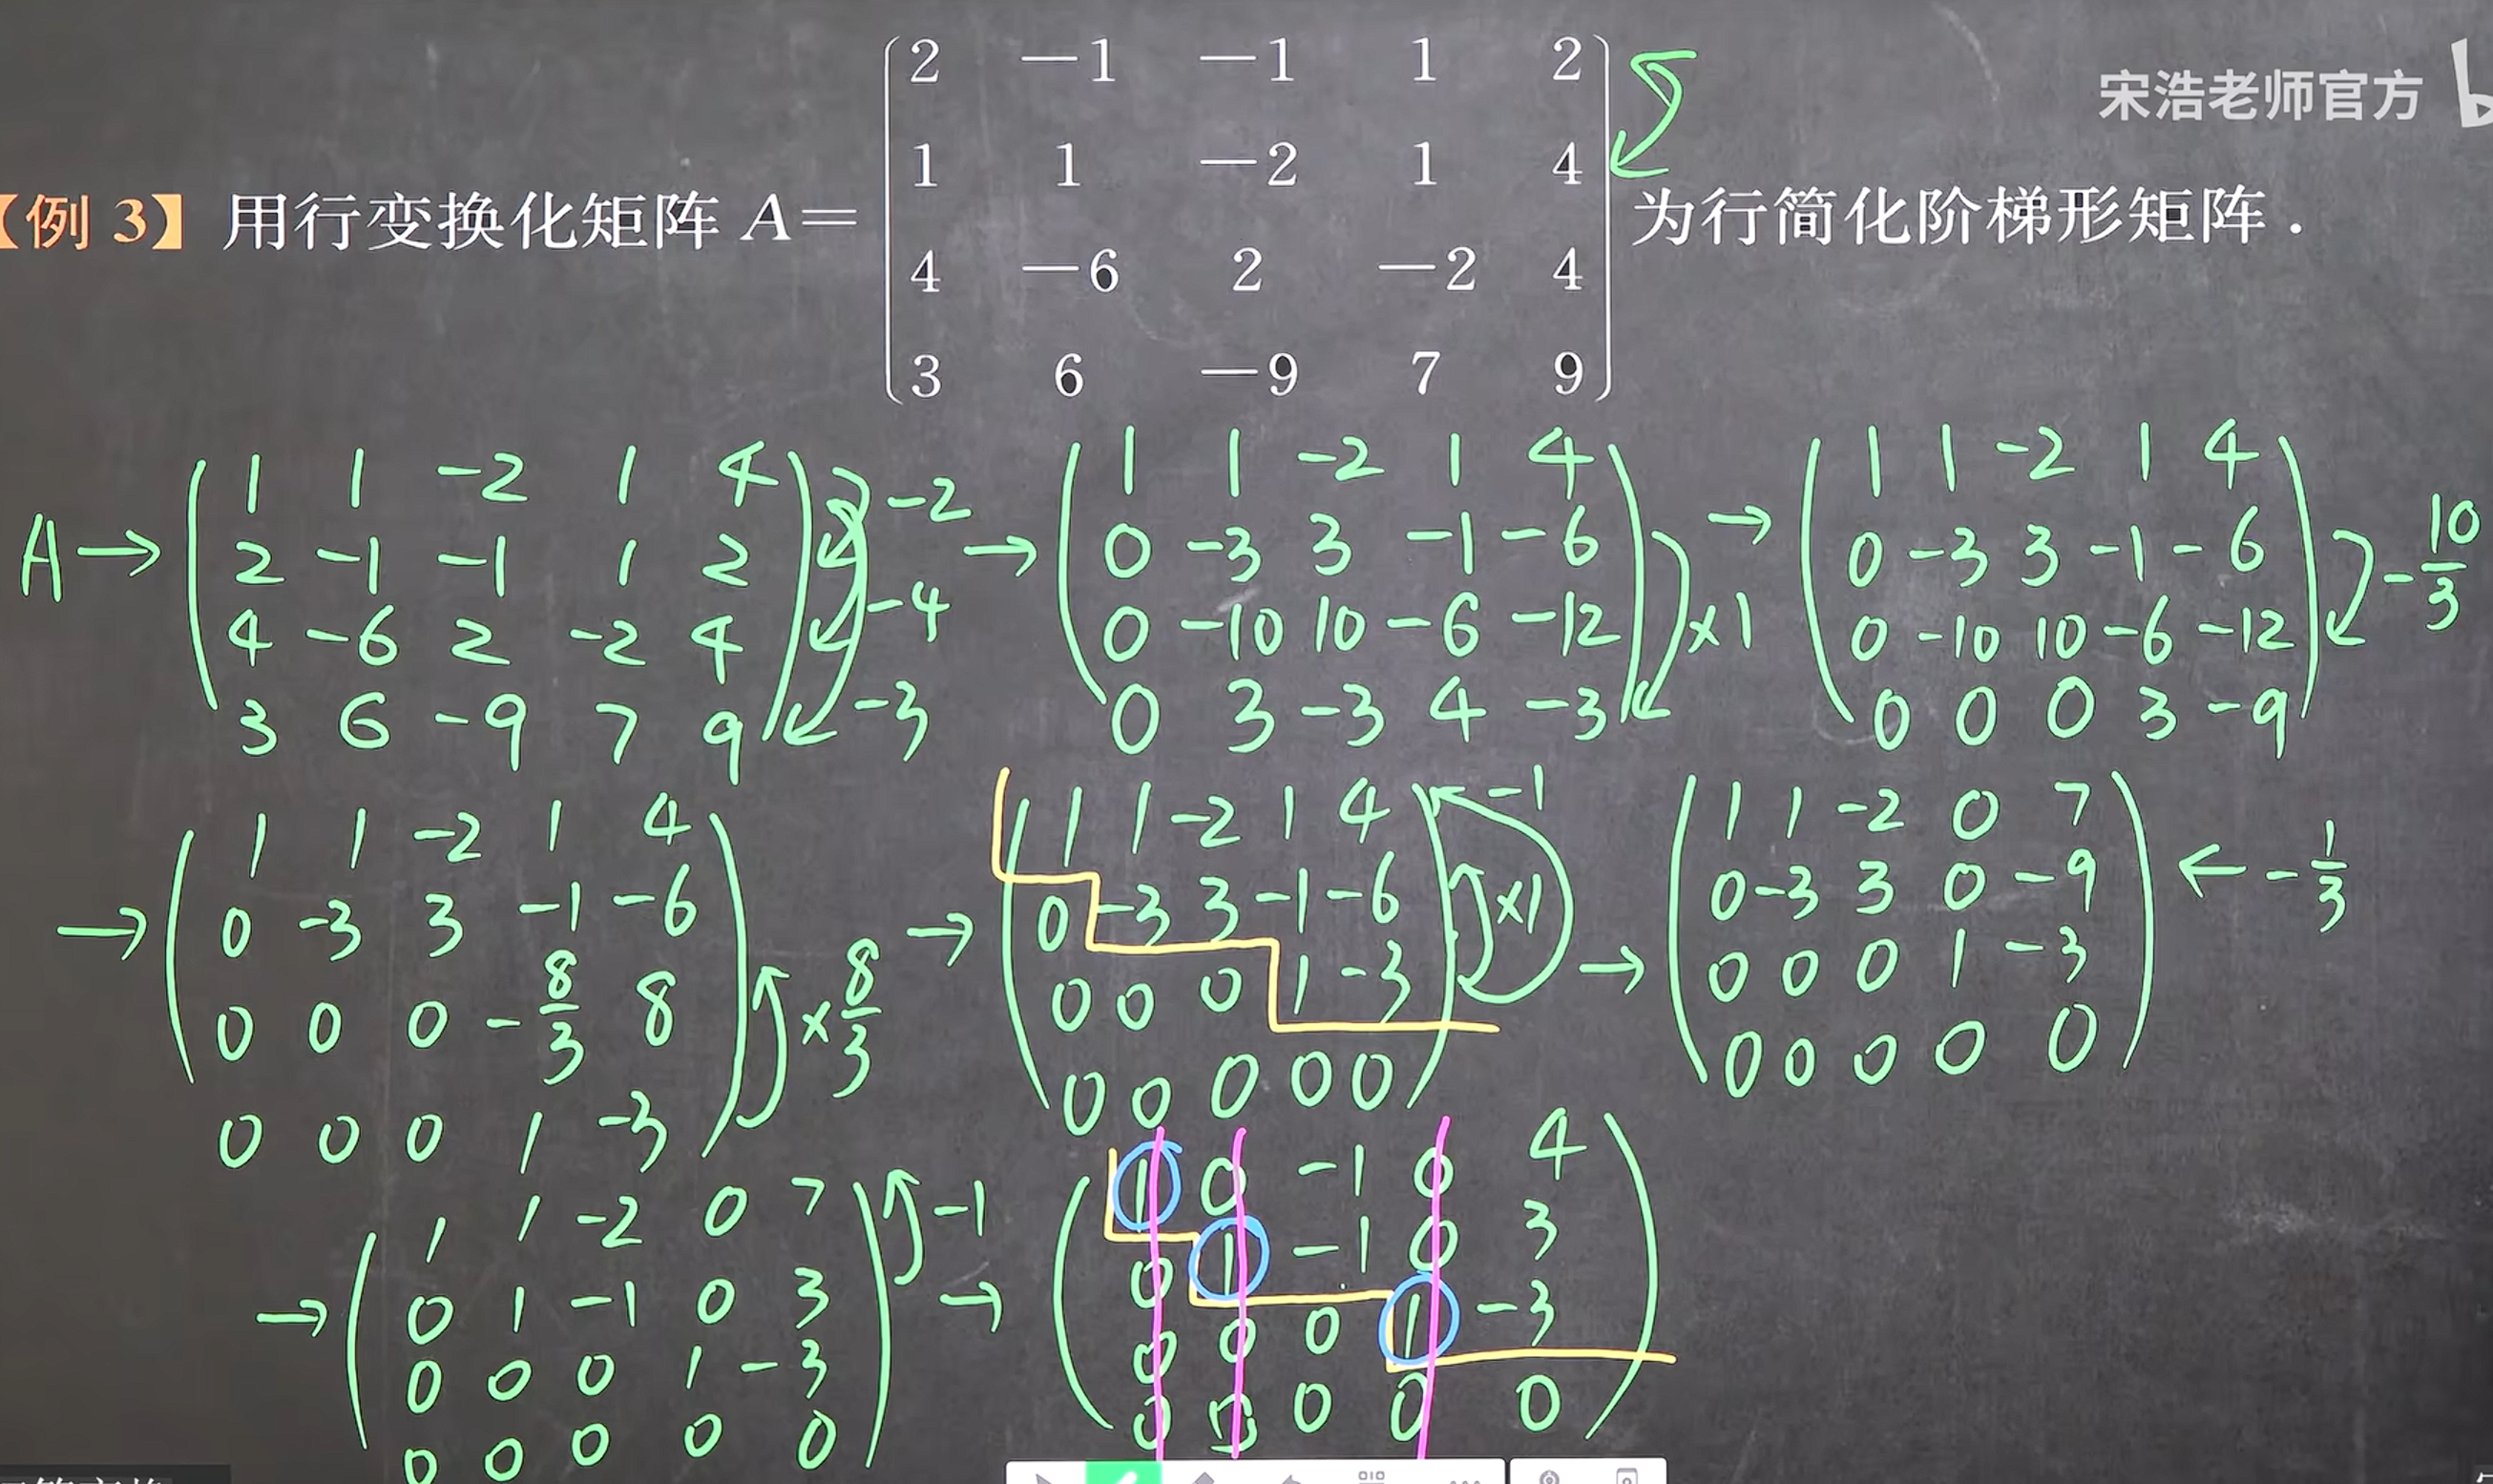 2 −1 −1 1 2
宋浩老师官方 b
1 1 −2 1 4
【例 3】 用行变换化矩阵 A= 为行简化阶梯形矩阵.
4 −6 2 −2 4
3 6 −9 7 9
A→
1 1 -2 1 4
2 -1 -1 1 2
4 -6 2 -2 4
3 6 -9 7 9
-2
-4
-3
→
1 1 -2 1 4
0 -3 3 -1 -6
0 -10 10 -6 -12
0 3 -3 4 -3
×1
→
1 1 -2 1 4
0 -3 3 -1 -6
0 -10 10 -6 -12
0 0 0 3 -9
-10/3
→
1 1 -2 1 4
0 -3 3 -1 -6
0 0 0 -8/3 8
0 0 0 1 -3
×8/3
→
1 1 -2 1 4
0 -3 3 -1 -6
0 0 0 1 -3
0 0 0 0 0
-1
×1
→
1 1 -2 0 7
0 -3 3 0 -9
0 0 0 1 -3
0 0 0 0 0
← -1/3
→
1 1 -2 0 7
0 1 -1 0 3
0 0 0 1 -3
0 0 0 0 0
-1
→
1 0 -1 0 4
0 1 -1 0 3
0 0 0 1 -3
0 0 0 0 0